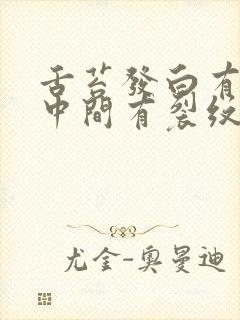 舌苔發白有
中間有裂紋
尤金-奧曼迪